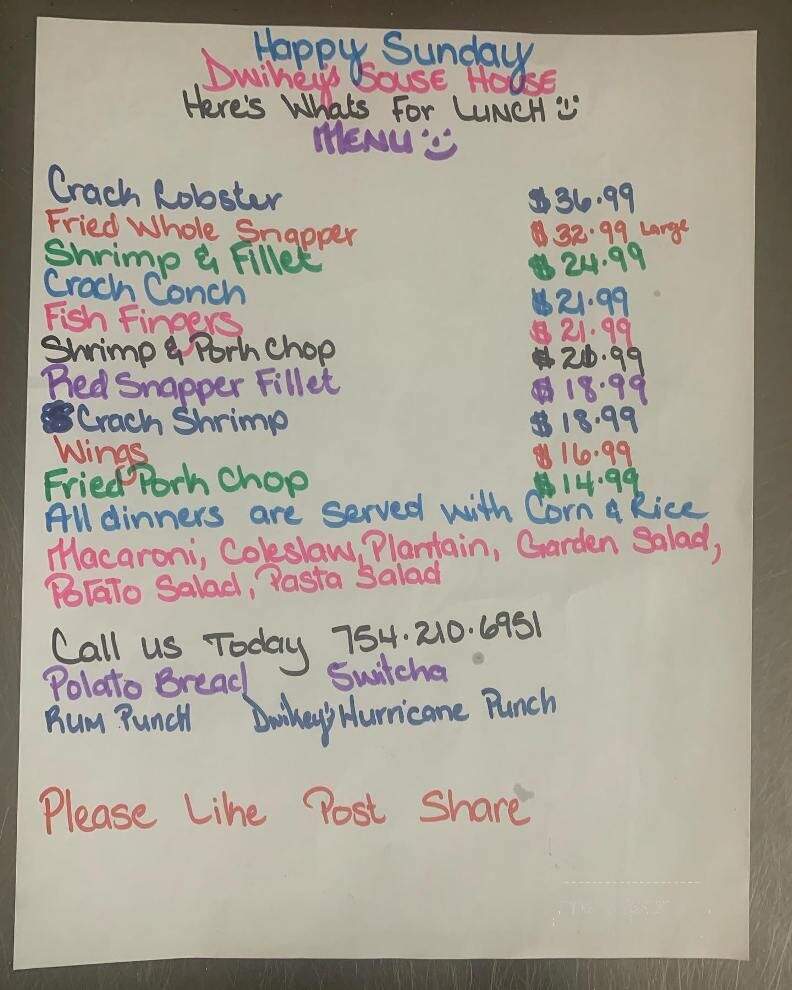 Happy Sunday
Dwikey's Souse House
Here's Whats For LUNCH
MENU
Crack Lobster $36.99
Fried Whole Snapper $32.99 Large
Shrimp & Fillet $24.99
Crack Conch $21.99
Fish Fingers $21.99
Shrimp & Pork Chop $20.99
Red Snapper Fillet $18.99
Crack Shrimp $18.99
Wings $16.99
Fried Pork Chop $14.99
All dinners are served with Corn & Rice
Macaroni, Coleslaw, Plantain, Garden Salad,
Potato Salad, Pasta Salad
Call us Today 754.210.6951
Potato Bread Switcha
Rum Punch Dwikey's Hurricane Punch
Please Like Post Share